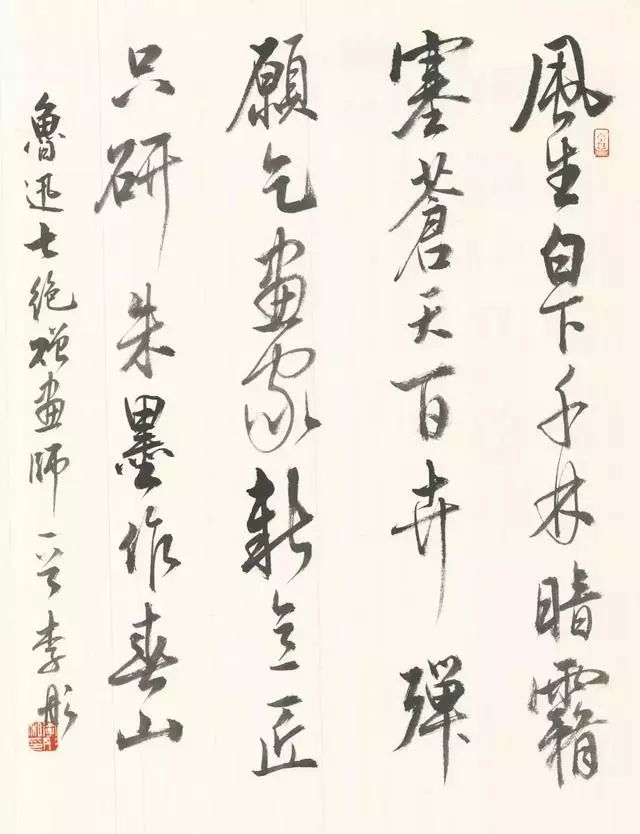 風生白下千林暗霧
塞蒼天百卉殫
願乞畫家新意匠
只研朱墨作春山
魯迅七絕贈畫師 李彤